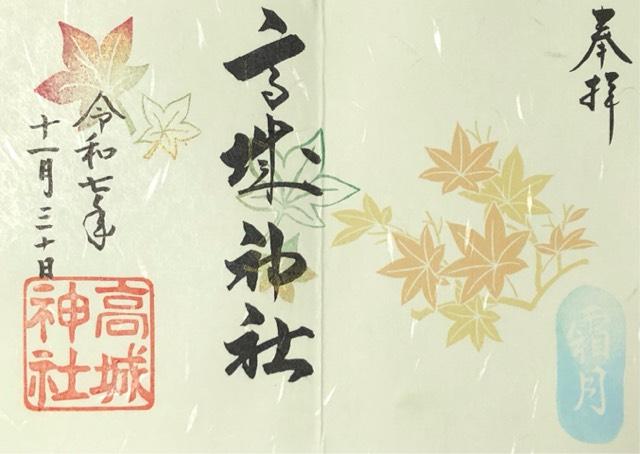 奉拝
霜月
高城神社
令和七年
十一月三十日
高城
神社